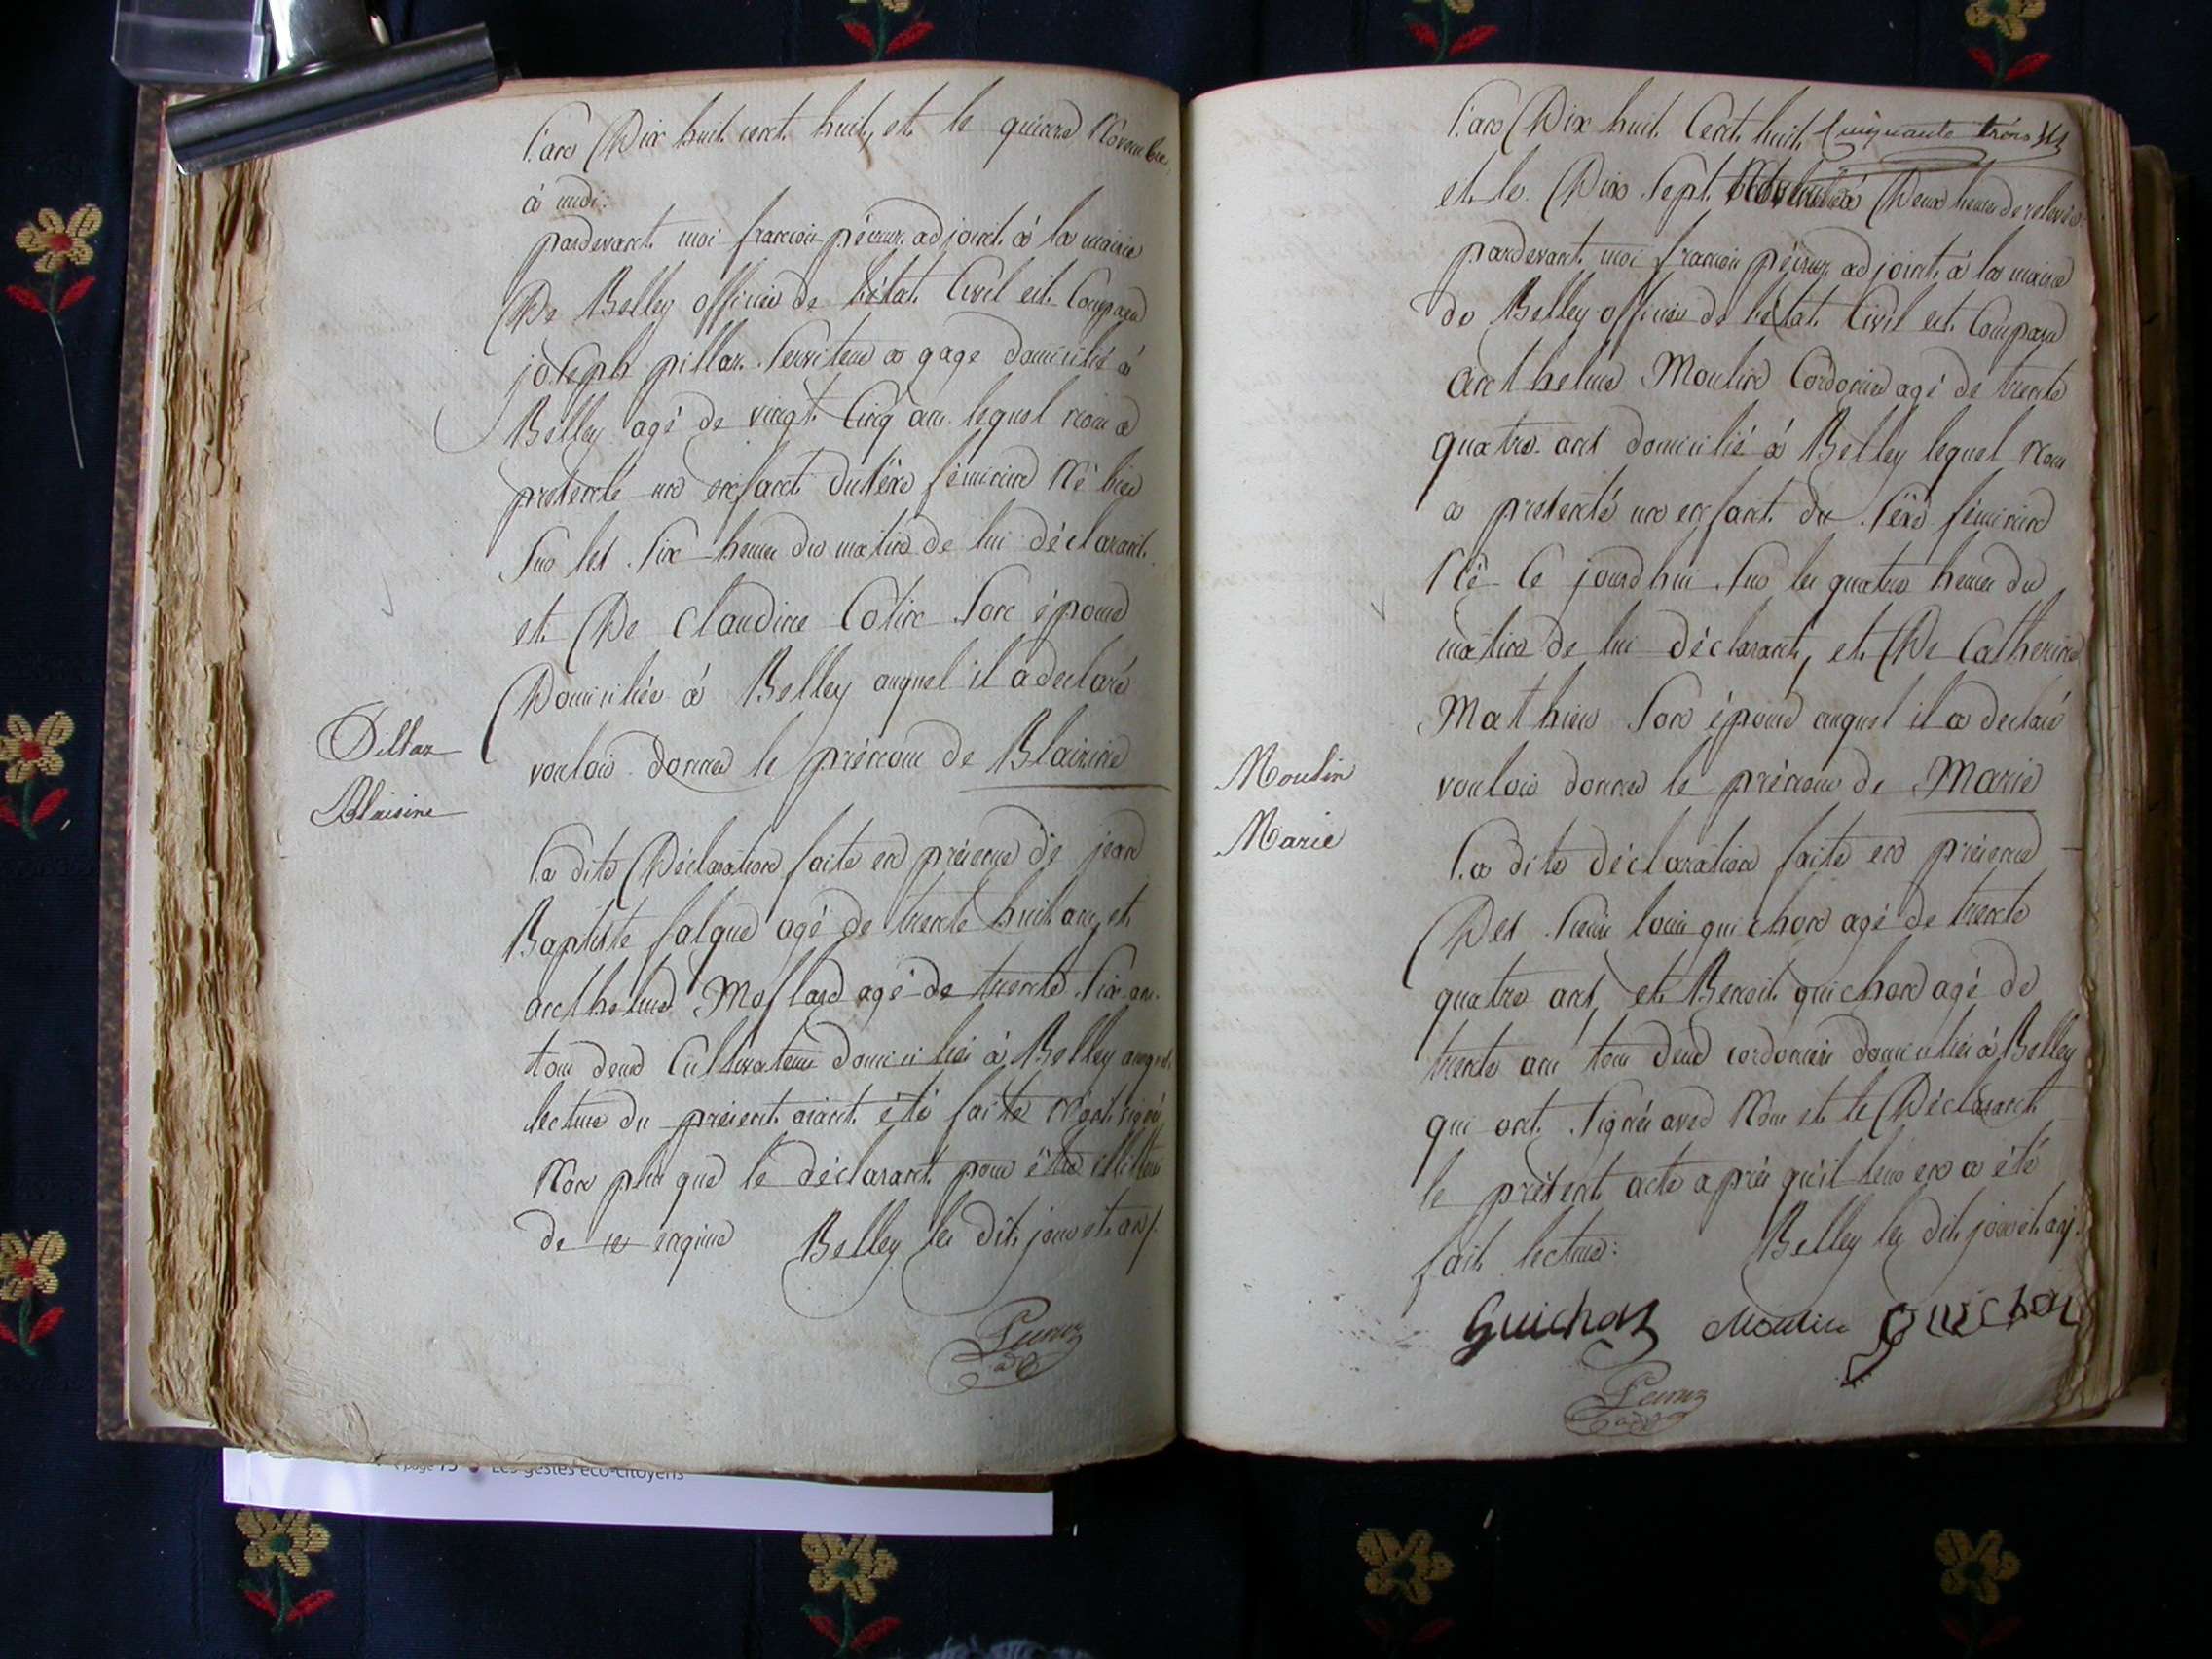 L'an Dix huit cent huit, et le quinze Novembre
à midi:
pardevant moi francois péruz adjoint à la mairie
De Belley officier de l'état Civil est Comparu
joseph pillaz serviteur a gage domicilié à
Belley agé de vingt Cinq ans lequel nous a
presenté un enfant du séxe féminin Né hier
Sur les Six heures du matin de lui déclarant
et De Claudine Cotin Son épouse
Domiciliée à Belley auquel il a declaré
Pillaz
vouloir donner le prénom de Blaisine
Blaisine
La dite Déclaration faite en présence de jean
Baptiste falque agé de trente huit ans, et
anthelme Mollard agé de trente Six ans
tous deux Cultivateurs domiciliés à Belley auxquels
lecture du présent aiant été faite N'ont signé
Non plus que le déclarant pour être illitéré
de ce enquis Belley les dit jour et an/.
L'an Dix huit Cent huit Cinquante trois
et le Dix Sept Novembre à Deux heures de relevée
pardevant moi francois péruz adjoint à la mairie
de Belley officier de l'état Civil est Comparu
Anthelme Moulin Cordonier agé de trente
quatre ans domicilié à Belley lequel Nous
a presenté un enfant du Séxe féminin
Né Ce jourd'hui Sur les quatre heures du
matin de lui déclarant, et De Catherine
Mathieu Son épouse auquel il a declaré
Moulin
vouloir donner le prénom de Marie
Marie
La dite déclaration faite en présence
Des Sieurs louis guichon agé de trente
quatre ans, et Benoit guichon agé de
trente ans tous deux cordoniers domiciliés à Belley
qui ont Signés avec Nous et le Déclarant
le présent acte après qu'il leur en a été
fait lecture: Belley les dit jour et an/.
Guichon Moulin guichon
page 75 Les gestes éco-citoyens